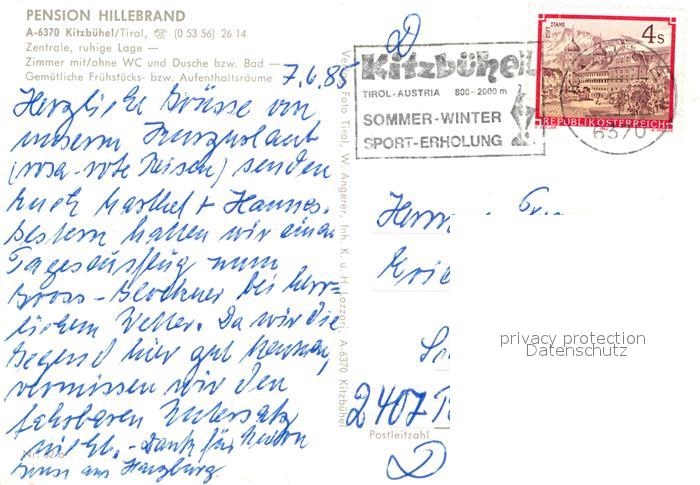 PENSION HILLEBRAND
A-6370 Kitzbühel/Tirol, ☎ (0 53 56) 26 14
Zentrale, ruhige Lage —
Zimmer mit/ohne WC und Dusche bzw. Bad —
Gemütliche Frühstücks- bzw. Aufenthaltsräume
7.6.85
Herzliche Grüsse von
unserem Kurzurlaub
(rosa-rote Reisen) senden
Euch + Hannes.
Gestern hatten wir einen
Tagesausflug zum
Gross-Glockner bei herr-
lichem Wetter. Da wir die
Gegend hier gut kennen,
vermissen wir den
fahrbaren Untersatz
nicht. - Dank für
aus Harzburg.
Verlag Foto Tirol, W. Angerer, Inh. K. u. H. Lazzari, A-6370 Kitzbühel
Kitzbühel
TIROL-AUSTRIA 800-2000 m
SOMMER-WINTER
SPORT-ERHOLUNG
STIFT STAMS
4 S
REPUBLIK ÖSTERREICH
6370
Herrn
2407
Postleitzahl
D
privacy protection
Datenschutz